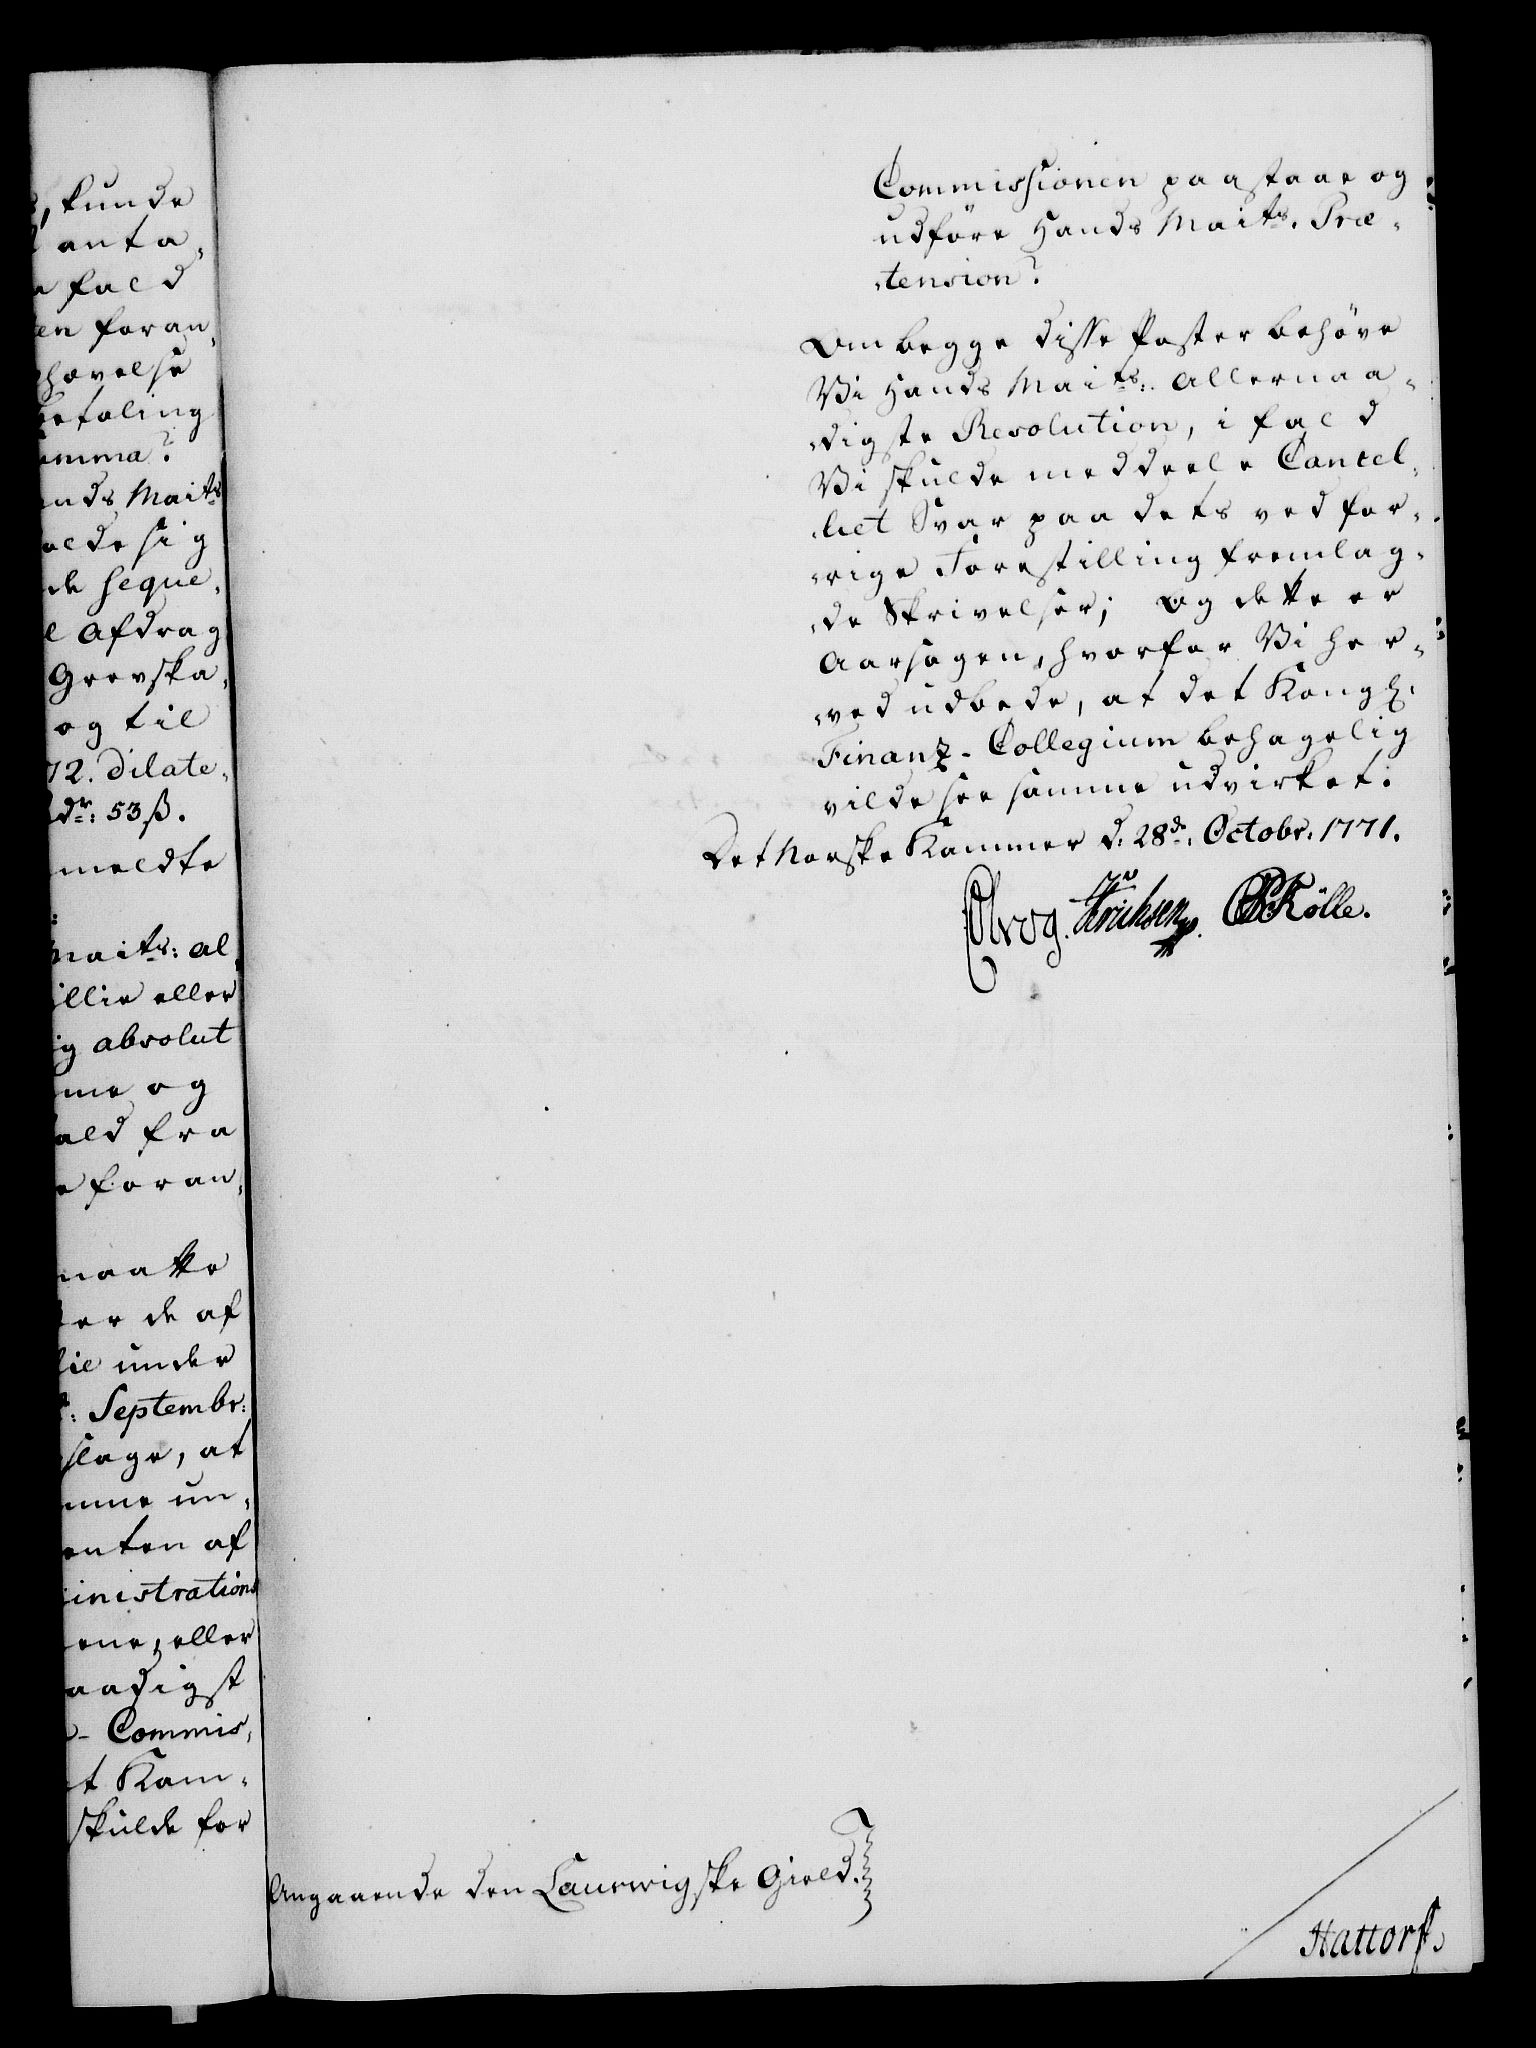 , kunde
anta„
fald
ten foran„
hævelse
betaling
omma?
ands Maits
olde sig
de seque„
l Afdrag
Grevska„
og til
72. dilate„
dr: 53 ß.
meldte
Maits: al„
illie eller
ig absolut
me og
ald fra
e foran„
maatte
er de af
lie under
: Septembr:
slage, at
mme un„
enten af
inistrations
ene, eller
aadigst
- Commis„
t Kam„
skulde for
Commissionen paastaae og
udføre Hands Maits. Præ„
„tension?
Om begge disse Poster behøve
Vi Hands Maits: Allernaa„
„digste Resolution, i fald
Vi skulde meddeele Cancel„
„liet Svar paa dets ved for„
„rige Forestilling fremlag„
„de Skrivelser; og dette er
Aarsagen, hvorfor Vi her„
„ved udbede, at det Kongl.
Finanz-Collegium behagelig
vilde see samme udvirket.
Det Norske Kammer d. 28de. Octobr. 1771.
Olrog. Erichsen. Kölle.
Angaaende den Laurwigske Gield.
Hattorf.